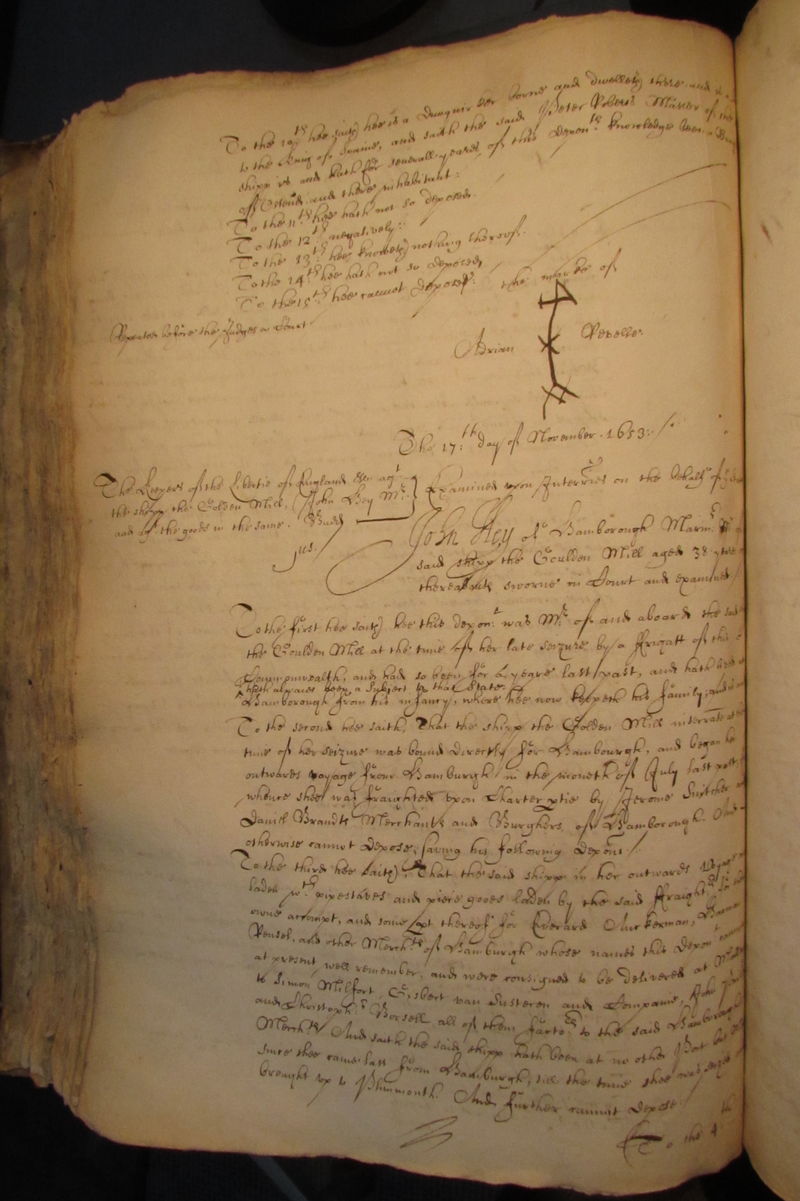 To the 10th hee saith hee is a Dunquirker borne and dwelleth there and is a
to the King of Spaine, and saith the said Peter Peters Master of the
shipp is and hath for severall yeares of this deponents knowledge been a Burger
of Ostend and there inhabitant:
To the 11th hee hath not so deposed.
To the 12th negatively:
To the 13th hee knoweth nothing thereof.
To the 14th hee hath not so deposed,
To the 15th hee cannot depose.
Repeated before the Judges in Court
The marke of
Adrian
The 17th day of November 1653:
The Keepers of the Libertie of England &c agt
the shipp the Golden Mill (John Hey Mr
and agt the goods in the same. Budd
Examined upon Interries on the behalf of
jus.
John Hey of Hamborough Marinr
said shipp the Goulden Mill aged 38 yeeres
thereabouts sworne in Court and examined
To the first hee saith hee this depont was Mr of and aboard the said
the Goulden Mill at the time of her late seizure by a ffrigatt of this
Commonwealth, and had so been for yeare last past, and hath lived at
hath alwaies been a Subject to that State
Hamborough from his infancy, where hee now keepeth his family, and
To the second hee saith, That the shipp the Golden Mill interrate at the
time of her seizure was bound directly for Hambourgh, and began her
outwards voyage from Hamburgh in the moneth of July last past
whence shee was fraighted upon Charter partie by Jerome Snitcher
Daniel Brandt Merchants and Burghers of Hamborough. And
otherwise cannot depose, saving his following deposn.
To the third hee saith, That the said shipp in her outwards voyage
laden wth pipestaves and piece goods laden by the said ffraighters
owne accompt, and some part thereof for Everard Anckerman,
Pensel, and other Merchts of Hamburgh whose names this depont cannot
at present well remember, and were consigned to be delivered at
to Simon Milfort, Gisbert van Susteren and Companie, John
and Christopher Borsell all of them factors to the said Hamborough
Merchts And saith the said shipp hath been at no other Port
since shee came last from Hamburgh, till the time shee was seized
brought up to Plimmouth. And further cannot depose
To the 4th